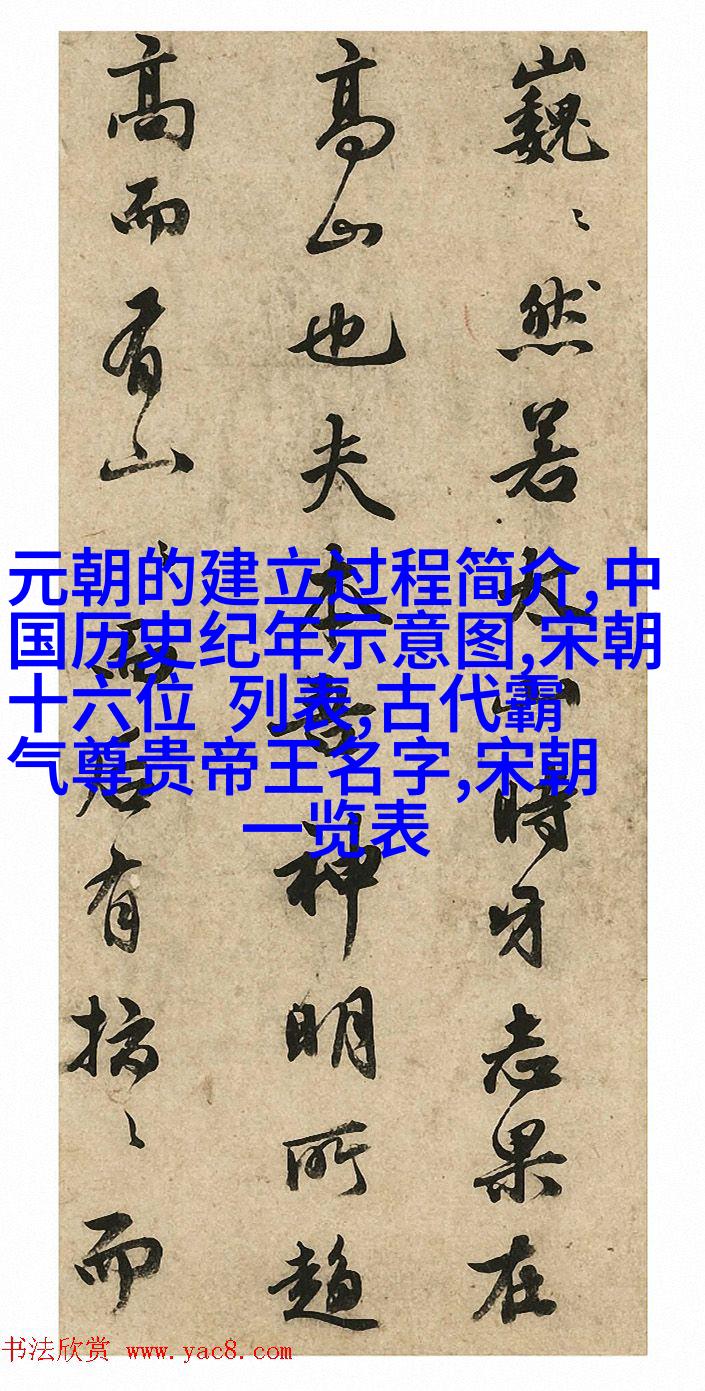 巍〻然若太山時牙志果在
高山也夫本神明所趨
高而有山〻而后有〻而
元朝的建立过程简介,中
国历史纪年示意图,宋朝
十六位 列表,古代霸
气尊贵帝王名字,宋朝
一览表
书法欣赏 www.yac8.com